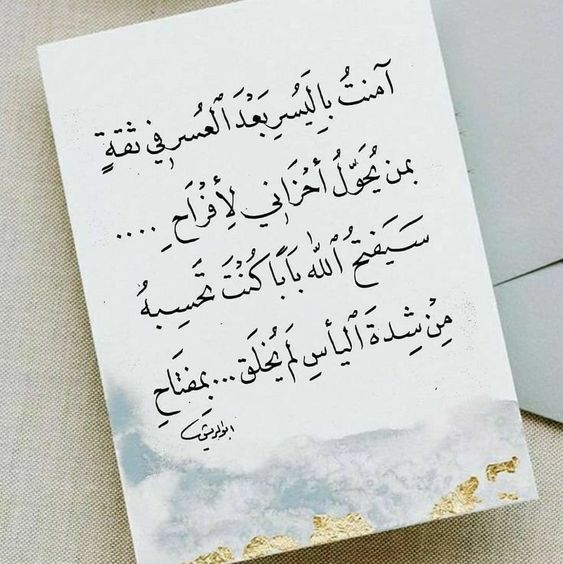 آمنتُ بِاليُسرِ بَعْدَ ٱلْعُسرِ في ثقةٍ
بمن يُحَوِّلُ أحْزَاني لِأفْرَاحِ ....
سَيَفتحُ ٱللهُ بَابًا كُنْتَ تَحسِبهُ
مِنْ شِدةَ ٱليأسِ لَم يُخلَق... بِمفتَاحِ